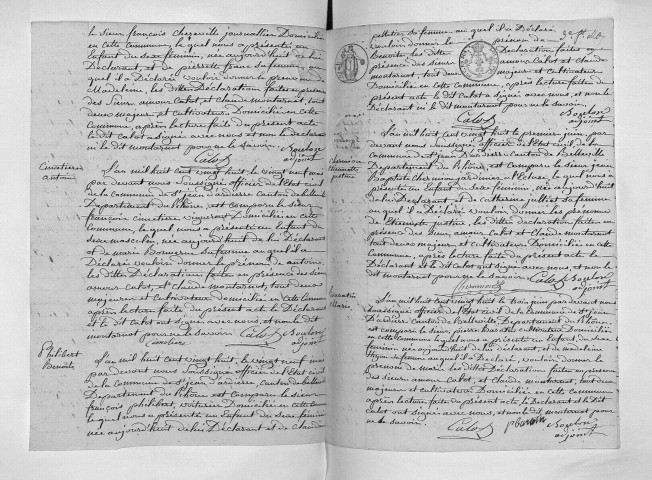 le sieur françois chezaville journallier Domicilié
en cette Commune, lequel nous a présenté un
Enfant du sexe féminin, née aujourd'huit de lui
Déclarant, et de pierrette sa femme, au
quel il a Déclaré vouloir donner le prenom de
Madeleine, les dittes Déclaration faites en presence
des Sieur amour Calot, et Claude montarnot, tout
deux majeur et Cultivateur Domicilié en cette
Commune, après lecture faite du présent acte
le dit Calot a signé avec nous et non le Déclarant
ni le dit montarnot pour ne le savoir.
Calot
adjoint
Cimetiere
antoine
L'an mil huit Cent vingt huit, le vingt neuf mai
par devant nous Soussigné officier de l'Etat civil
de la Commune de St jean d'ardiere Canton de belleville
Département du Rhône, est comparu le sieur
françois cimetiere vigneron Domicilié en cette
Commune, lequel nous a présenté un Enfant du
sexe masculin, née aujourd'huit de lui Déclarant
et de marie sa femme au quel il a
Déclaré vouloir donner le prénom de antoine
les dittes Déclaration faite en présence des sieur
amour Calot, et Claude montarnot, tout deux
majeur et Cultivateur Domicilié en cette Commune
après lecture faite du présent acte le Déclarant
et le dit Calot ont signés avec nous, et non le dit
montarnot pour ne le savoir
Cimetiere Calot
adjoint
philibert
Benoite
L'an mil huit Cent vingt huit, le vingt neuf mai
par devant nous Soussigné officier de l'Etat civil
de la Commune de St jean d'ardiere, canton de belleville
Département du Rhône est Comparu le Sieur
françois philibert, voiturier Domicilié en cette commune
lequel nous a présenté un Enfant du sexe féminin
née aujourd'huit de lui Déclarant et de Claudine
pelletier sa femme au quel il a Déclaré
vouloir donner le prénom de
Benoite les dittes Déclaration faites en
présence des sieur amour Calot et Claude
montarnot, tout deux majeur et cultivateur
Domicilié en cette Commune, après lecture faite du
présent acte le dit Calot a signé avec nous, et non le
Déclarant ni le dit montarnot pour ne le savoir.
Calot
adjoint
L'an mil huit Cent vingt huit le premier juin, par
devant nous Soussigné officier de l'Etat civil, de la
Commune de St jean d'ardiere Canton de Belleville
Département du Rhône, est Comparu le sieur jean
Baptiste lequel nous a
présenté un Enfant du sexe feminin, née aujourd'huit
de lui Déclarant, et de Catherine sa femme
au quel il a Déclaré vouloir donner les prénoms
de les dittes Déclaration faite en
présence des sieur amour Calot et Claude montarnot
tout deux majeur et cultivateur Domicilié en cette
Commune, après lecture faite du présent acte le
Déclarant et le dit Calot ont signés avec nous, et non le dit
montarnot pour ne le savoir
Calot
adjoint
Marie
L'an mil huit Cent vingt huit le trois juin par devant nous
Soussigné officier de l'Etat civil de la Commune de St jean
D'ardiere canton de Belleville Département du Rhône
est comparu le sieur pierre Domicilié
en cette Commune lequel nous a présenté un Enfant, du sexe
féminin née aujourd'huit de lui Déclarant, et de madeleine
sa femme au quel il a Déclaré, vouloir donner le
prenom de marie les dittes Déclaration faites en presence
des sieur amour Calot, et Claude montarnot, tout deux
majeur et cultivateur Domicilié en cette Commune
après lecture faite du présent acte, le Déclarant et le dit
Calot ont signés avec nous, et non le dit montarnot pour
ne le savoir.
Calot
adjoint